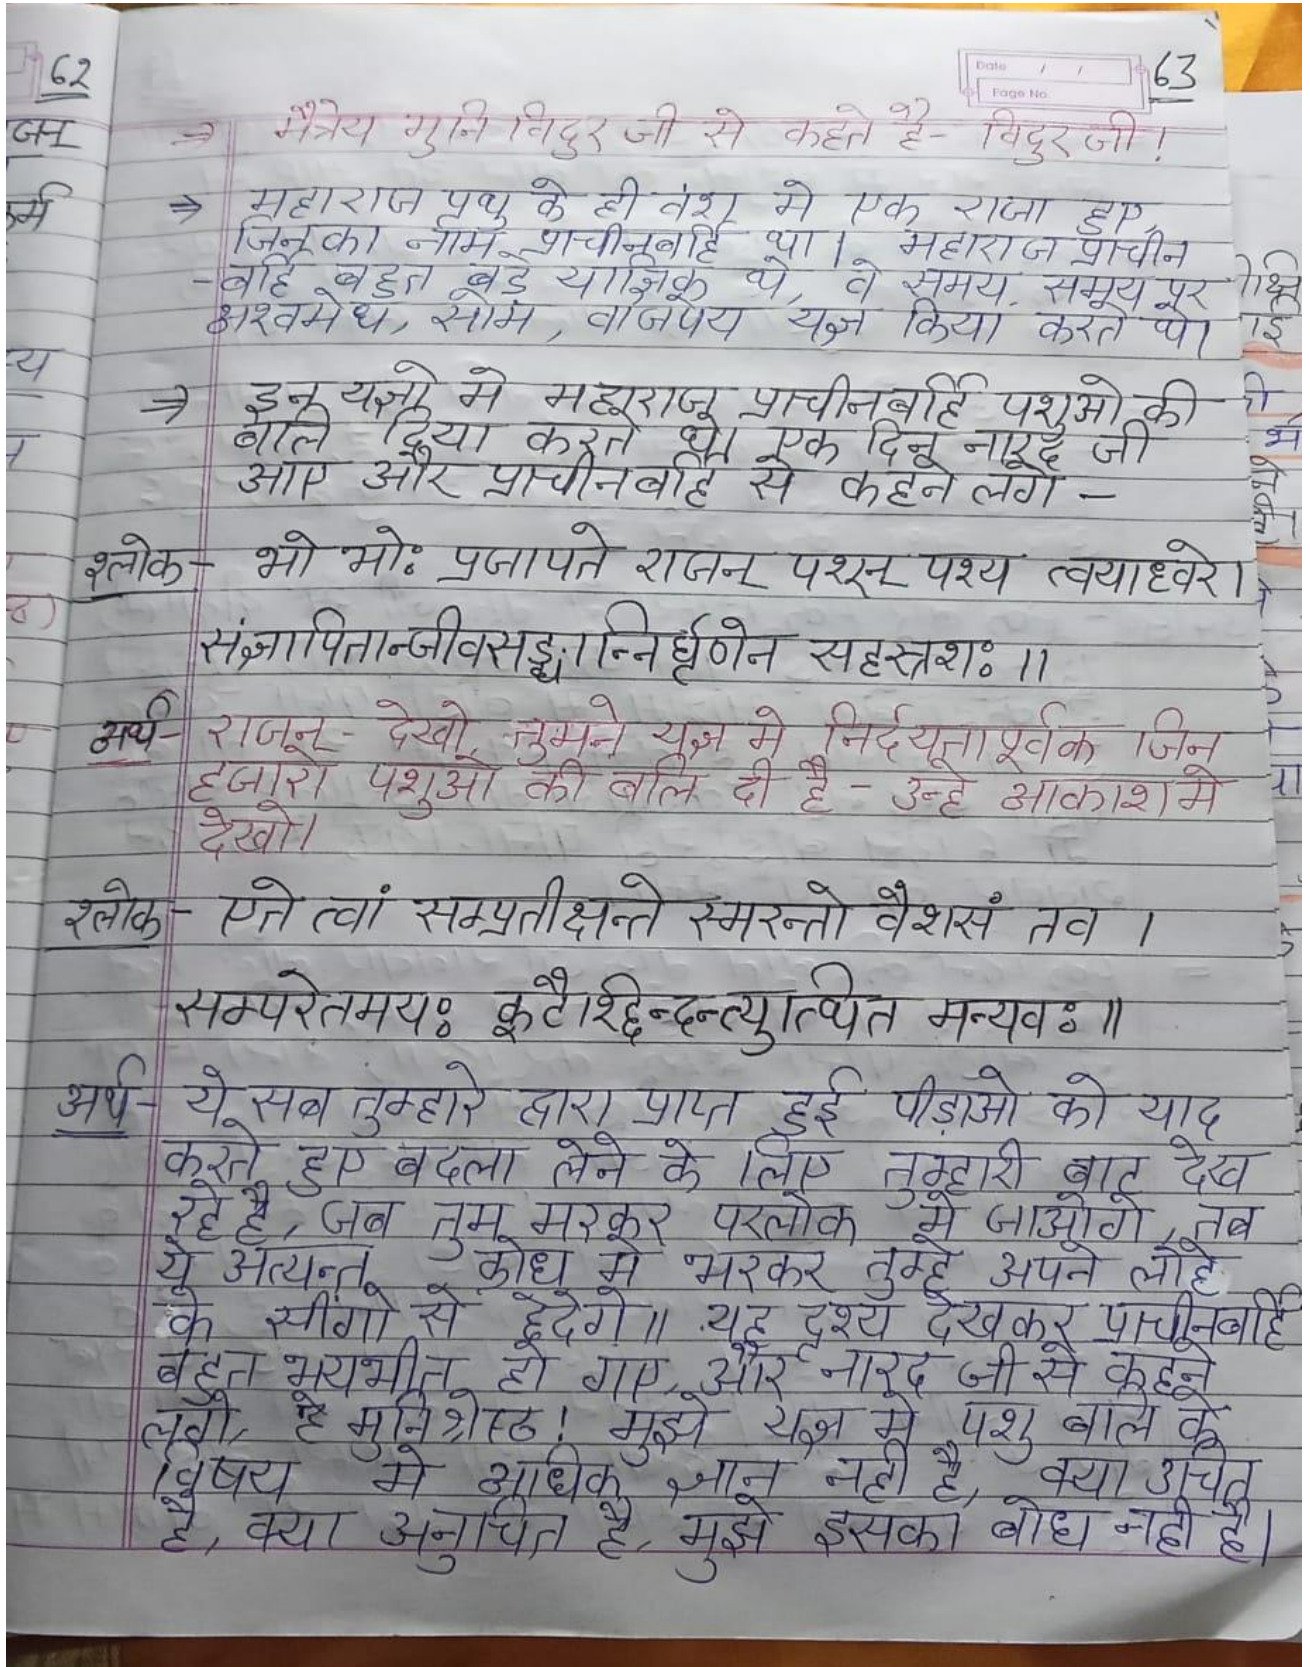 62
63
Date / /
Page No.
⇒ मैत्रेय मुनि विदुर जी से कहते है- विदुर जी!
⇒ महाराज पृथु के ही वंश मे एक राजा हुए,
जिनका नाम प्राचीनबर्हि था। महाराज प्राचीन
-बर्हि बहुत बडे याज्ञिक थे, वे समय समय पर
अश्वमेध, सोम, वाजपेय यज्ञ किया करते थे।
⇒ इन यज्ञो मे महाराज प्राचीनबर्हि पशुओ की
बलि दिया करते थे। एक दिन नारद जी
आए और प्राचीनबर्हि से कहने लगे -
श्लोक- भो भोः प्रजापते राजन् पशून् पश्य त्वयाध्वरे।
संज्ञापितान्जीवसङ्घान्निर्घृणेन सहस्त्रशः॥
अर्थ- राजन्- देखो, तुमने यज्ञ मे निर्दयतापूर्वक जिन
हजारो पशुओ की बलि दी है - उन्हे आकाश मे
देखो।
श्लोक- एते त्वां सम्प्रतीक्षन्ते स्मरन्तो वैशसं तव।
सम्परेतमयः कूटैश्छिन्दन्त्युत्थित मन्यवः॥
अर्थ- ये सब तुम्हारे द्वारा प्राप्त हुई पीड़ाओ को याद
करते हुए बदला लेने के लिए तुम्हारी बाट देख
रहे है, जब तुम मरकर परलोक मे जाओगे, तब
ये अत्यन्त क्रोध मे भरकर तुम्हे अपने लोहे
के सींगो से छेदेगे॥ यह दृश्य देखकर प्राचीनबर्हि
बहुत भयभीत हो गए, और नारद जी से कहने
लगे, हे मुनिश्रेष्ठ! मुझे यज्ञ मे पशु बलि के
विषय मे अधिक ज्ञान नही है, क्या उचित
है, क्या अनुचित है, मुझे इसका बोध नही है।